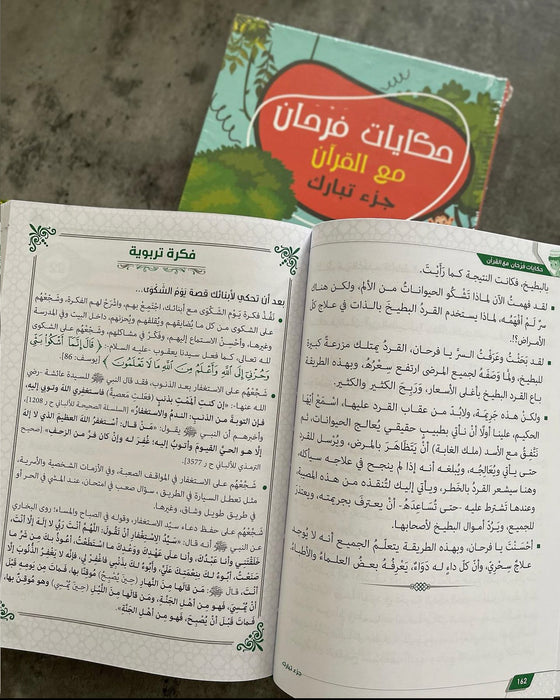 حكايات فَرْحَان
مع القرآن
جزء تبارك
حكايات فَرْحَان مع القرآن
بالبطيخ، فكانت النتيجة كما رَأَيْتَ.
لقد فهمتُ الآن لماذا تَشْكُو الحيواناتُ من الألمِ، ولكن هناك
سرٌّ لم أَفْهَمْه، لماذا يستخدم القردُ البطيخَ بالذات في علاج كلّ
الأمراض؟!.
لقد بَحَثْتُ وعَرَفْتُ السرَّ يا فرحان، القردُ يمتلك مزرعةً كبيرةً
للبطيخ، ولمَّا وَصَفَهُ لجميع المرضى ارتفع سِعْرُهُ، وبهذه الطريقة
باع القرد البطيخ بأغلى الأسعار، وَرَبِحَ الكثير والكثير.
ولكنْ هذه جَرِيمَة، ولابُدَّ من عقاب القرد عليها، اسْمَعْ أيها
الحكيم، علينا أولًا أنْ نأتي بطبيبٍ حقيقي يُعالج الحيوانات، ثم
نَتَّفِقُ مع الأسد (ملك الغابة) أنْ يَتَظَاهَرَ بالمرض، ويُرْسل للقرد
حتى يأتي ويُعَالِجَه، ويُبلغه أنه إذا لم ينجح في علاجه سيأكله،
وهنا سيشعر القردُ بالخَطَر، ويأتي إليك لتُنقذه من هذه المصيبة،
وعندها نَشْترط عليه -حتى نُسَاعِدَهُ- أنْ يعترفَ بجريمته، ويعتذرَ
للجميع، ويَرُدَّ أموال البطيخ لأصحابها.
أَحْسَنْتَ يا فرحان، وبهذه الطريقة يتعلَّمُ الجميعُ أنه لا يُوجد
علاجٌ سِحْرِيّ، وأنَّ كلَّ داءٍ له دَوَاءٌ، يَعْرِفُهُ بعضُ العلماءُ والأطباءُ.
162
فكرة تربوية
بعد أن تحكي لأبنائك قصة يَوْمُ الشَّكْوَى...
نَفِّذْ فكرة يَوْم الشَّكْوَى مع أبنائك، اجْتَمِعْ بهم، واشْرَحْ لهم الفكرة، وشَجِّعْهُم
على الشكوى من كل ما يُضايقهم ويُقلقهم ويُحزنهم، داخل البيت وفي المدرسة
وغيرها، وأَحْسِن الاستماعَ إليهم، وفَكِّرْ في مشاكلهم، وشَجِّعْهُم على الشكوى
لله تعالى، كما فعل سيدنا يعقوب -عليه السلام-: ﴿قَالَ إِنَّمَا أَشْكُوا بَثِّي
وَحُزْنِي إِلَى اللَّهِ وَأَعْلَمُ مِنَ اللَّهِ مَا لَا تَعْلَمُونَ﴾ [يوسف: 86]
شَجِّعْهُم على الاستغفار بعد الذنوب، فقد قال النبي ﷺ للسيدة عائشة -رضي
الله عنها-: «إن كنتِ ألمَمْتِ بِذَنْبٍ (فعلتِ معصيةً) فاستغفري اللهَ وتوبي إليه،
فإن التوبةَ من الذنبِ: الندمُ والاستغفارُ» (السلسلة الصحيحة للألباني ح/ 1208)،
وأخبرهم أن النبي ﷺ يقول: «مَنْ قال: أستغفرُ اللهَ العظيمَ الذي لا إلهَ
إلَّا هو الحيَّ القيومَ وأتوبُ إليه؛ غُفِرَ له وإنْ كان فَرَّ من الزَحفِ» (صحيح
الترمذي للألباني ح/ 3577).
شَجِّعْهُم على الاستغفار في المواقف الصعبة، وفي الأزمات الشخصية والأسرية،
مثل تعطل السيارة في الطريق، سؤال صعب في امتحان، عند المشي في الحر أو
في طريق طويل وشاق، وغيرها.
شَجِّعْهُم على حفظ دعاء سَيِّد الاستغفار، وقوله في الصباح والمساء؛ روى البخاري
عن النبي ﷺ أنه قال: «سَيِّدُ الاسْتِغْفَارِ أَنْ تَقُولَ: اللَّهُمَّ أَنْتَ رَبِّي لا إلَهَ إلَّا أَنْتَ،
خَلَقْتَنِي وأَنَا عَبْدُكَ، وأَنَا علَى عَهْدِكَ ووَعْدِكَ ما اسْتَطَعْتُ، أَعُوذُ بكَ مِن شَرِّ ما
صَنَعْتُ، أَبُوءُ لكَ بنِعْمَتِكَ عَلَيَّ، وأَبُوءُ لكَ بذَنْبِي فَاغْفِرْ لِي، فإنَّه لا يَغْفِرُ الذُّنُوبَ إلَّا
أَنْتَ. قال ﷺ: مَن قالَها مِنَ النَّهارِ (حِينَ يُصْبِحُ) مُوقِنًا بها، فَمَاتَ مِن يَومِهِ قَبْلَ
أَنْ يُمْسِيَ، فَهو مِن أَهْلِ الجَنَّةِ، ومَن قالَها مِنَ اللَّيْلِ (حِينَ يُمْسِي) وهو مُوقِنٌ بها،
فَماتَ قَبْلَ أَنْ يُصْبِحَ، فَهو مِن أَهْلِ الجَنَّةِ».
جزء تبارك